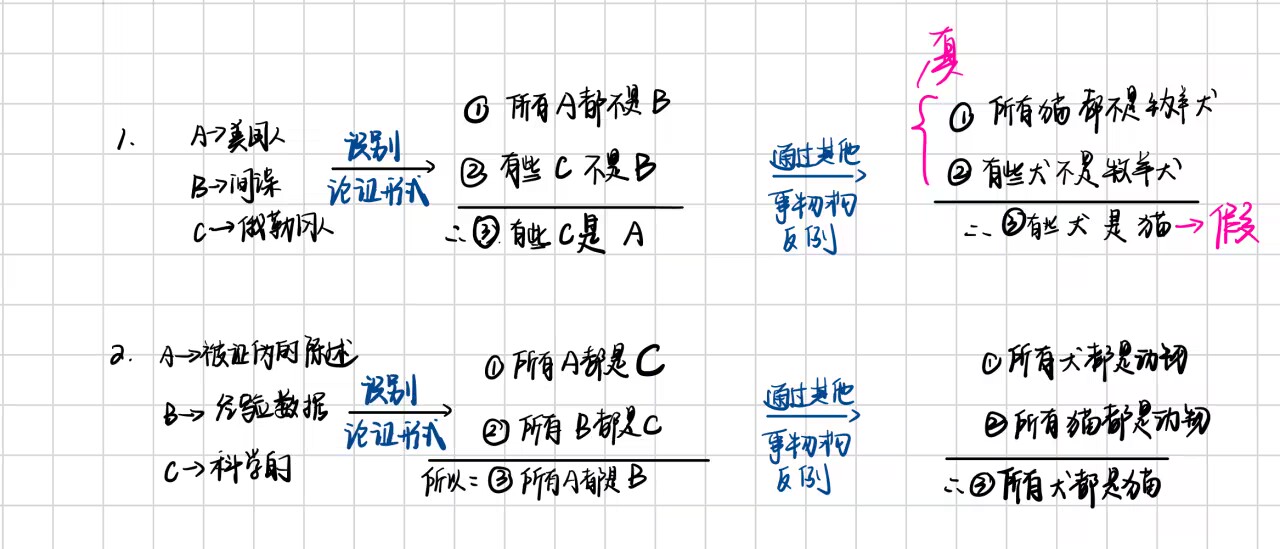 1.
A→美国人
B→间谍
C→俄勒冈人
识别
论证形式
① 所有A都不是B
② 有些C不是B
∴ ③ 有些C是A
通过其他
事物构
反例
真
① 所有猫都不是牧羊犬
② 有些犬不是牧羊犬
∴ ③有些犬是猫→假
2.
A→被证伪的陈述
B→经验数据
C→科学的
识别
论证形式
① 所有A都是C
② 所有B都是C
所以: ③ 所有A都是B
通过其他
事物构
反例
① 所有犬都是动物
② 所有猫都是动物
∴ ③ 所有犬都是猫